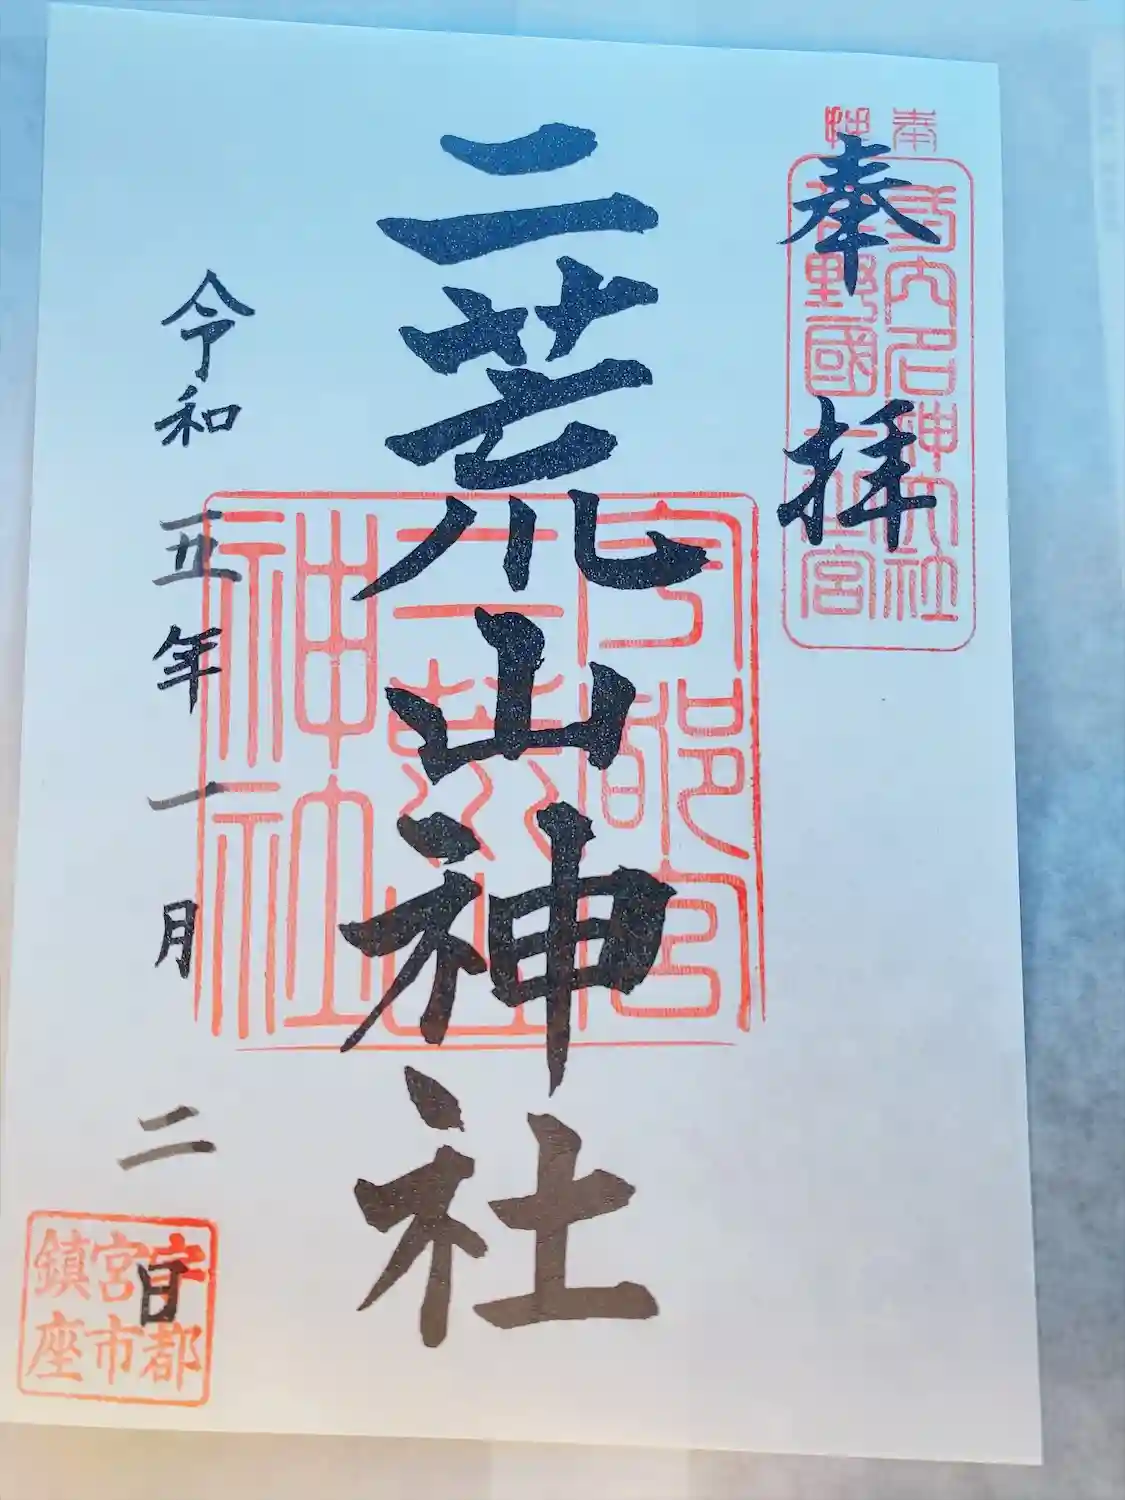 奉拝
式内名神大社
下野國一之宮
二荒山神社
宇都宮
二荒山
神社
令和五年一月二日
宇都
宮市
鎮座